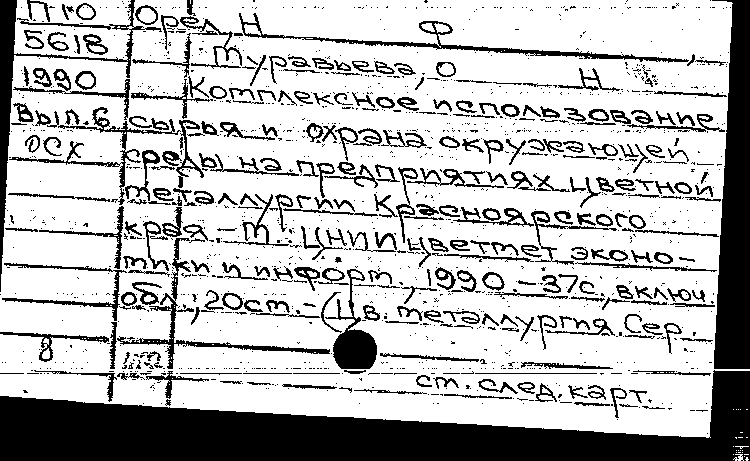 П10 Орел, Н Ф ,
5618 Муравьева, О Н
1990 Комплексное использование
Вып.6 сырья и охрана окружающей
ОСХ среды на предприятиях цветной
металлургии Красноярского
края.-М.: ЦНИИцветмет эконо-
мики и информ., 1990.-37с., включ.
обл.; 20см.-(Цв. металлургия. Сер.
8
см. след. карт.